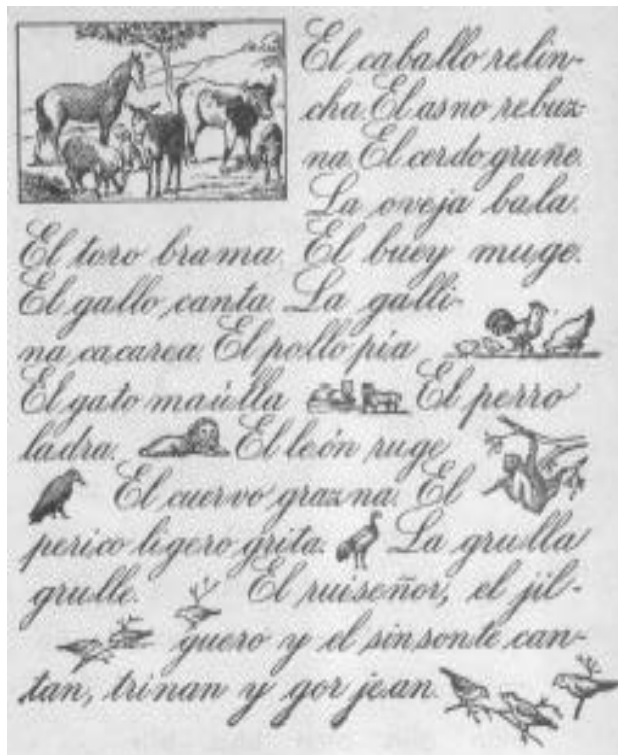 El caballo relin-
cha. El asno rebuz-
na. El cerdo gruñe.
La oveja bala.
El toro brama. El buey muge.
El gallo canta. La galli-
na cacarea. El pollo pía
El gato maúlla El perro
ladra. El león ruge
El cuervo grazna. El
perico ligero grita. La grulla
grulle. El ruiseñor, el jil-
guero y el sinsonte can-
tan, trinan y gorjean.